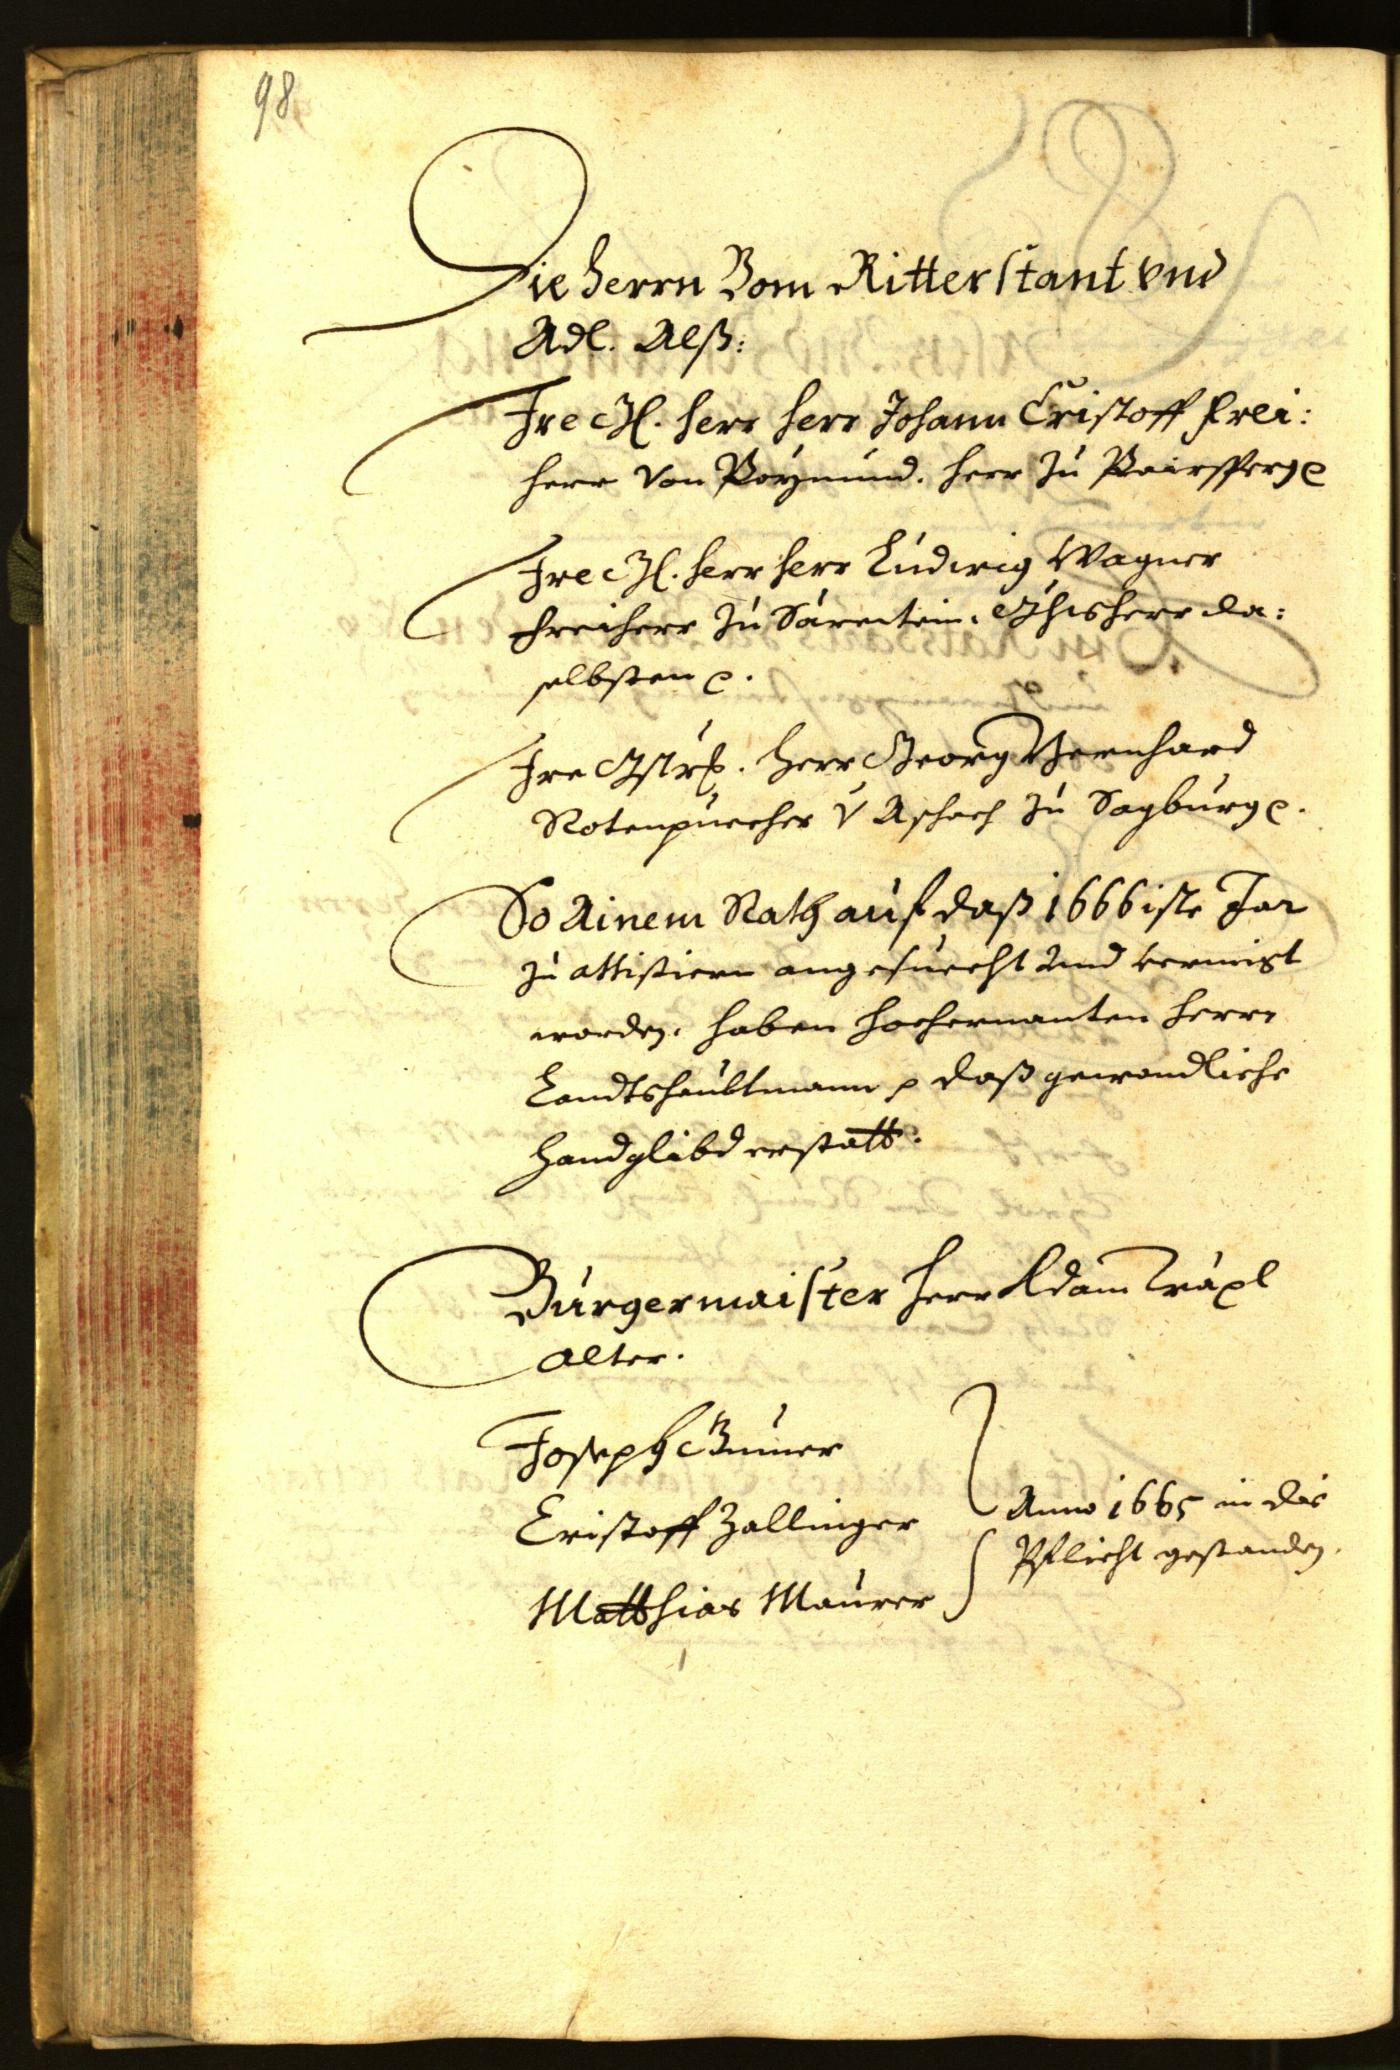 98
Die Herrn Vom Ritterstant vnd
Adl. Alß:
Ire G. herr herr Johann Cristoff frei:
herr von Poymund. herr zu Pairsperg
Ire G. herr herr Ludwig Wagner
freiherr zu Särentein. Gthsherr da:
selbsten
Ire Gstr. Herr Georg Bernhard
Rotenpuecher v Aschach zu Sagburg
So Ainem Rath auf daß 1666iste Jar
zu attistiern angesuecht und
worden. haben hochernanten herrn
Landtshaubtmann daß gewondliche
handglibd erstatt.
Burgermaister herr Adam Träpl
Alter.
Joseph Gumer
Cristoff Zallinger
Matthias Maurer
Anno 1665 in die
Pflicht gestanden.